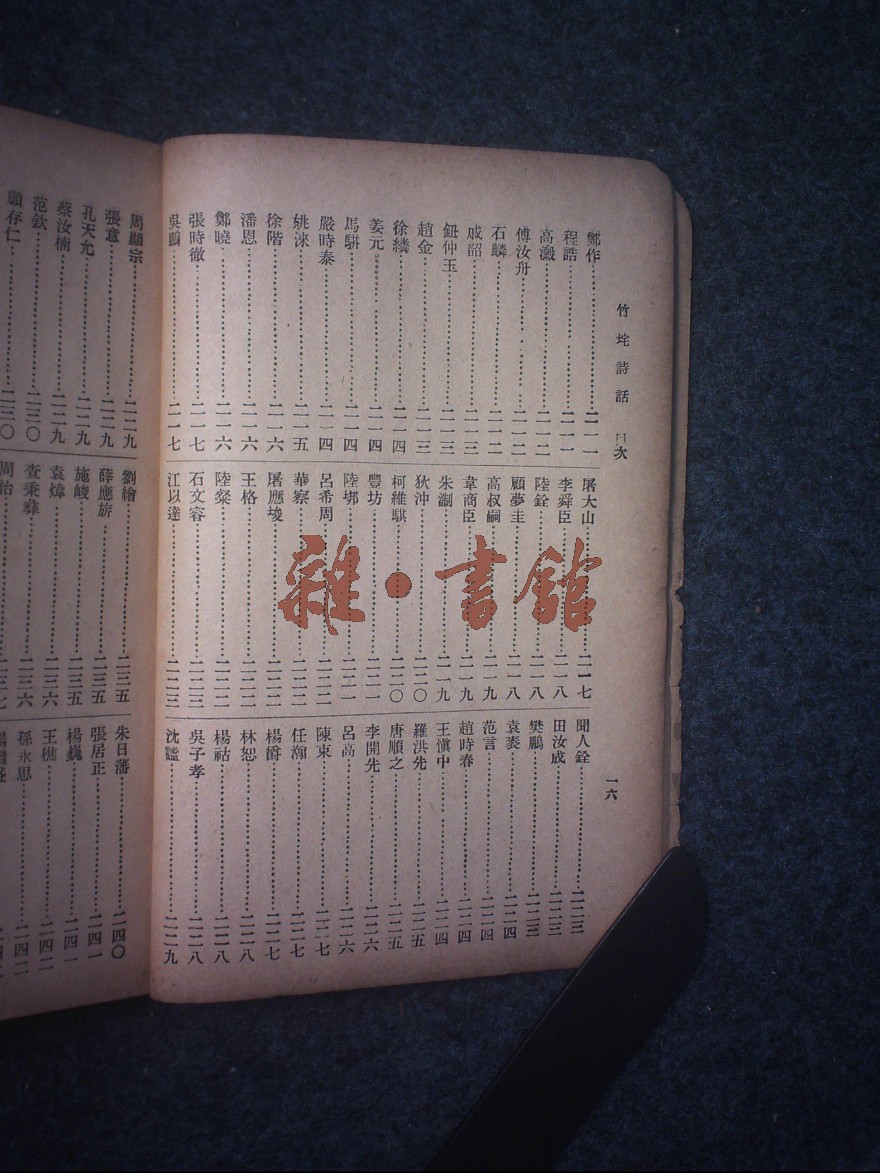 竹垞詩話 目次
一六
鄭作二一一
程誥二一一
高瀔二一二
傅汝舟二一二
石麟二一二
戚韶二一三
鈕仲玉二一三
趙金二一三
徐繗二一四
姜元二一四
馬駢二一四
嚴時泰二一四
姚淶二一五
徐階二一六
潘恩二一六
鄭曉二一六
張時徹二一七
吳鵬二一七
屠大山二一七
李舜臣二一八
陸銓二一八
顧夢圭二一八
高叔嗣二一九
韋商臣二一九
朱淛二一九
狄沖二二〇
柯維騏二二〇
豐坊二二一
陸埛二二一
呂希周二二二
華察二二二
屠應埈二二二
王格二二二
陸粲二二二
石文睿二二三
江以達二二三
聞人銓二二三
田汝成二二三
樊鵬二二三
袁袠二二四
范言二二四
趙時春二二四
王愼中二二四
羅洪先二二五
唐順之二二五
李開先二二六
呂高二二六
陳束二二七
任瀚二二七
楊爵二二七
林恕二二八
楊祜二二八
吳子孝二二八
沈鑑二二九
周顯宗二二九
張意二二九
孔天允二二九
蔡汝楠二二九
范欽二三〇
顧存仁二三〇
劉繪二三五
薛應旂二三五
施峻二三五
袁煒二三六
查秉彝二三六
周怡二三七
朱日藩二四〇
張居正二四一
楊巍二四一
王樵二四二
孫永思二四二
雜·書館